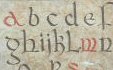 a b c d e f
g h i j k l m n